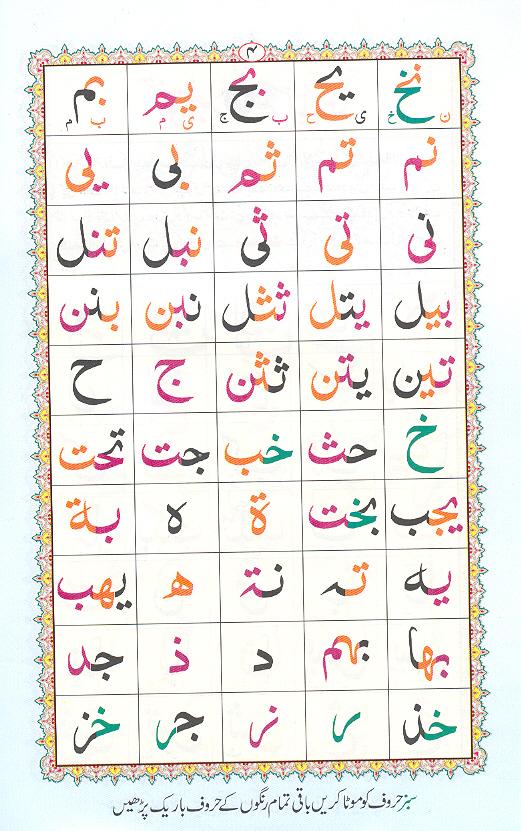 ۴
نخ یح بج یم بم
ن خ ی ح ب ج ی م ب م
نم تم ثم بی یی
نی تی ثی نبل تنل
بیل یتل ثثل نبن بنن
تین یتن ثثن ج ح
خ حث خب جت تحت
یجب بخت ة ہ بة
یه تہ نة ھ یهب
بها بهم د ذ جد
خذ ر نر جر خز
سبز حروف کو موٹا کریں باقی تمام رنگوں کے حروف باریک پڑھیں